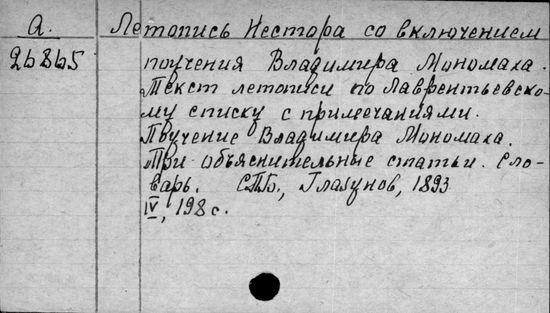 А. Летопись Нестора со включением
26865 поучения Владимира Мономаха.
Текст летописи по Лаврентьевско-
му списку с примечаниями.
Пвучение Владимира Мономаха.
Три объяснительные статьи. Сло-
варь. СПБ., Глазунов, 1893
IV, 198 с.